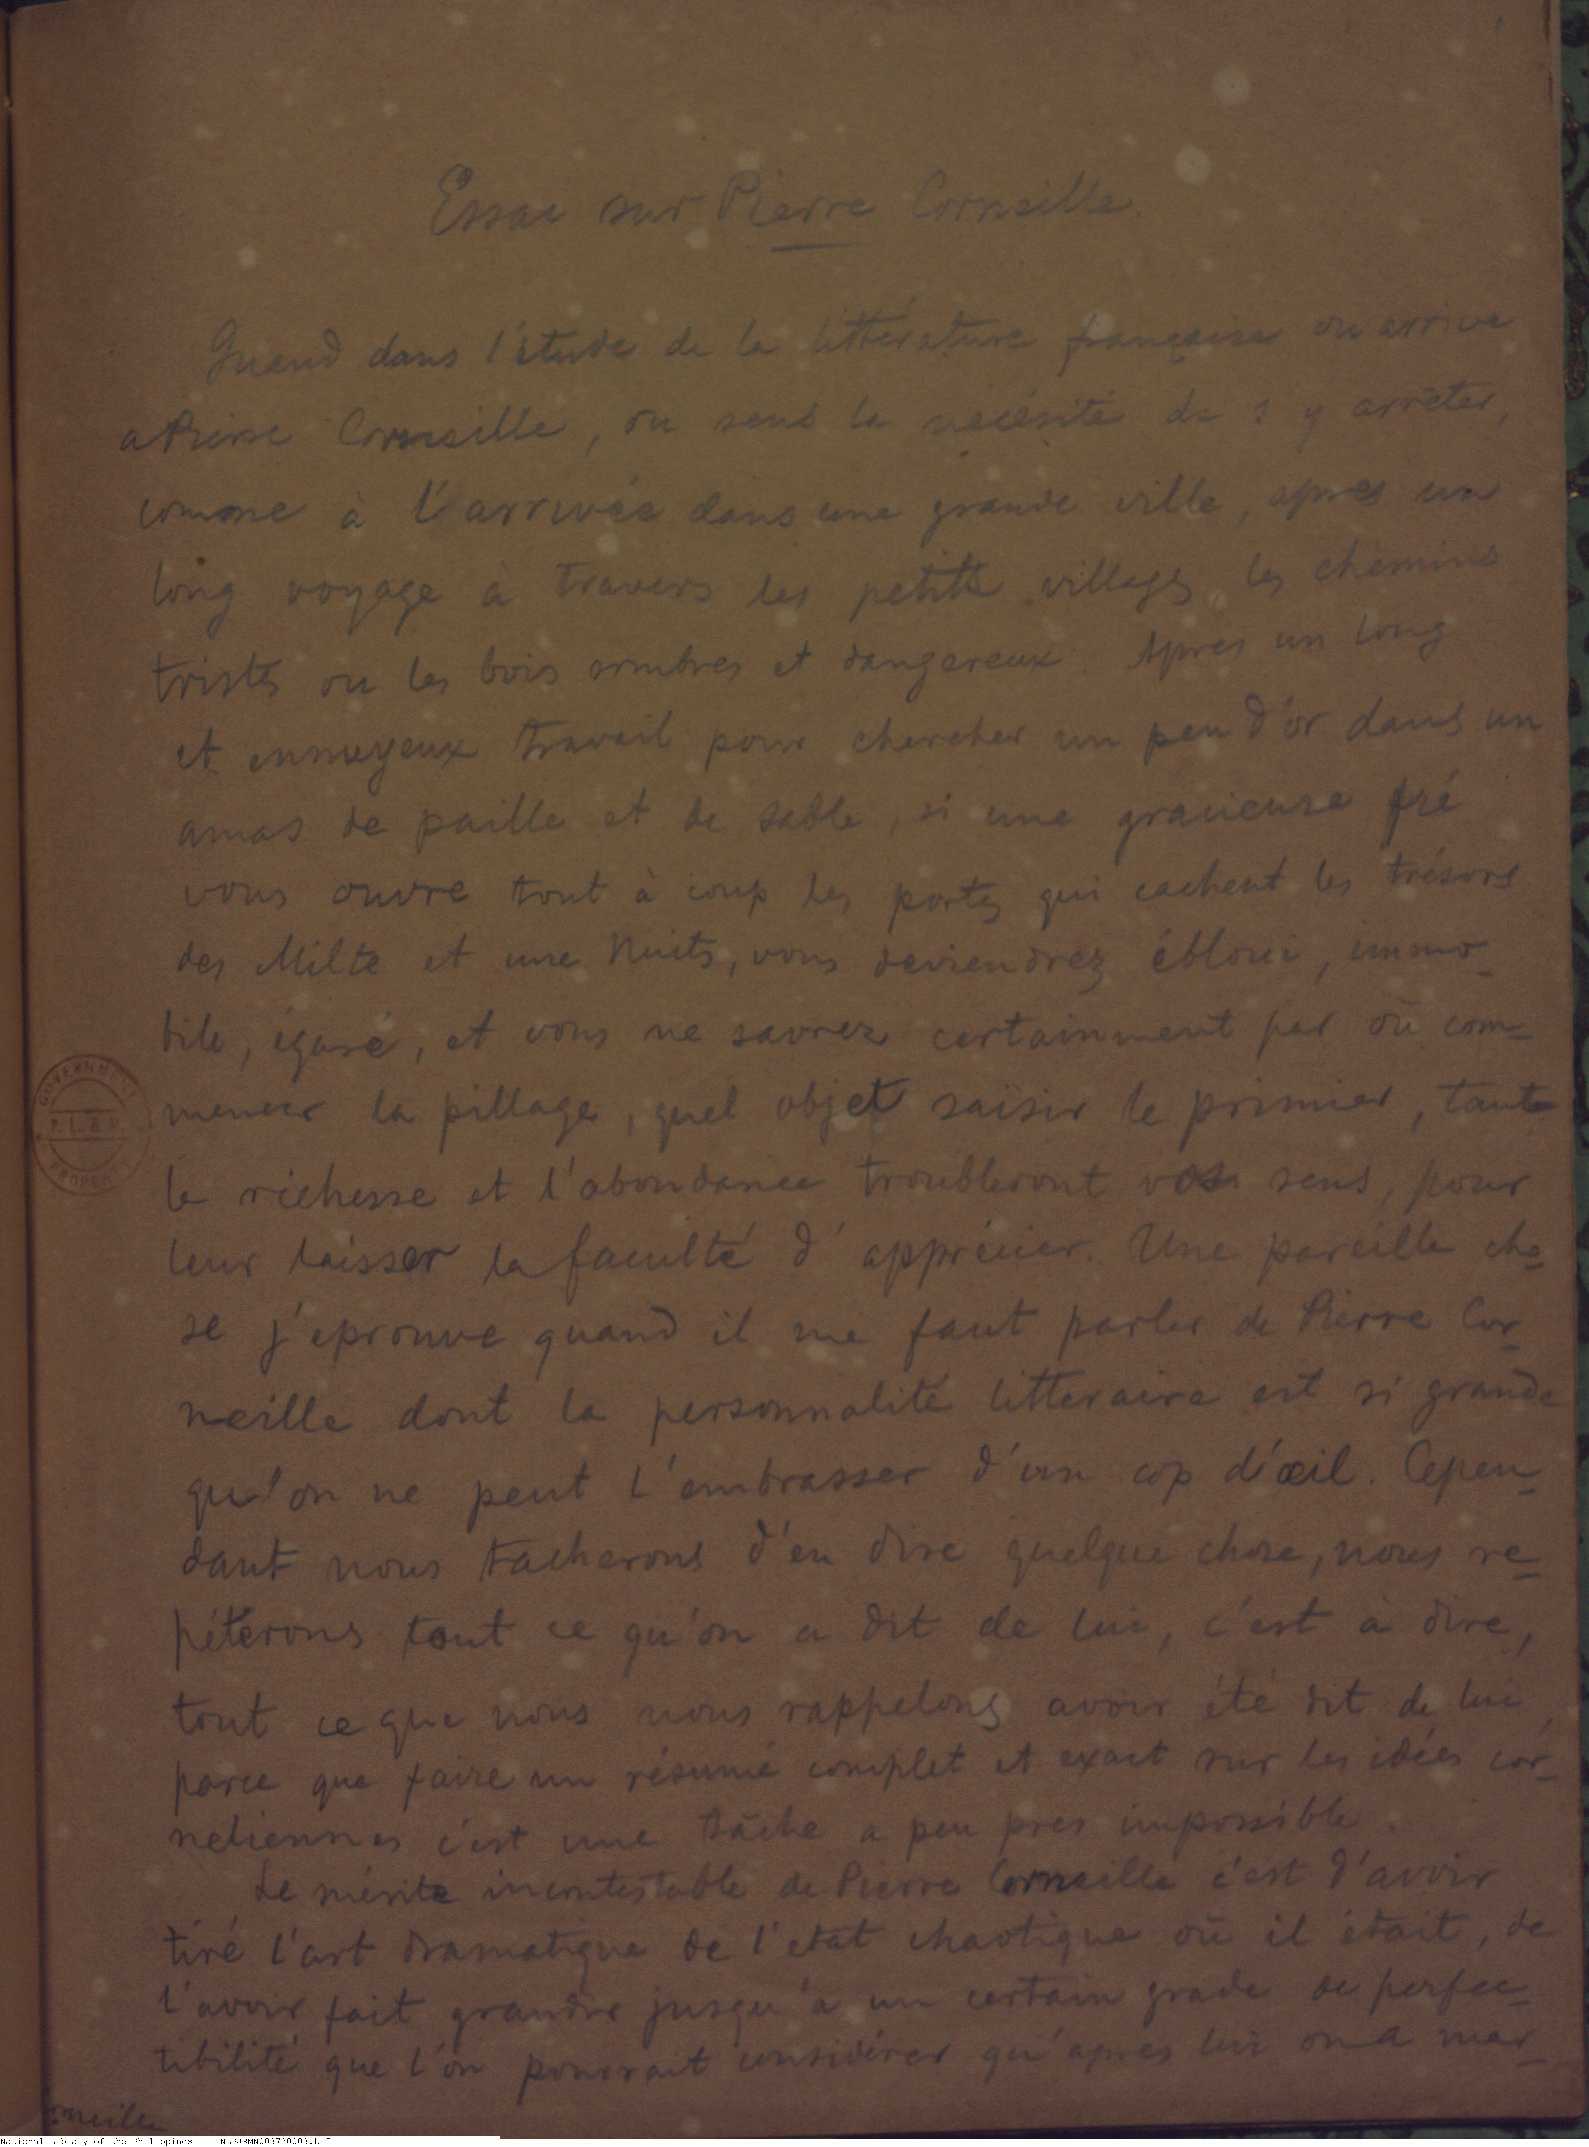 Essai sur Pierre Corneille.
Quand dans l'étude de la littérature française on arrive
a Pierre Corneille, on sens la necésité de s'y arrêter,
comme à l'arrivée dans une grande ville, apres un
long voyage à travers les petits villages, les chemins
tristes ou les bois sombres et dangereux. Apres un long
et ennuyeux travail pour chercher un peu d'or dans un
amas de paille et de sable, si une gracieuse fré
vous ouvre tout à coup les portes qui cachent les trésors
des Mille et une Nuits, vous deviendrez ébloui, immo-
bile, égaré, et vous ne savrez certainment par où com-
mencer la pillage, quel objet saisir le primier, tant
la richesse et l'abondance troubleront vos sens, pour
leur laisser la faculté d'apprécier. Une pareille cho-
se j'eprouve quand il me faut parler de Pierre Cor-
neille dont la personnalité litteraire est si grande
qu'on ne peut l'embrasser d'un cop d'œil. Cepen-
dant nous tacherons d'en dire quelque chose, nous re-
péterons tout ce qu'on a dit de lui, c'est à dire,
tout ce que nous nous rappelons avoir été dit de lui,
parce que faire un résumé complet et exact sur les idées cor-
neliennes c'est une tâche a peu pres impossible.
Le mérite incontestable de Pierre Corneille c'est d'avoir
tiré l'art dramatique de l'etat chaotique où il était, de
l'avoir fait grandir jusqu'a un certain grade de perfec-
tibilité que l'on pourrait considérer qu'apres lui on a mar-
GOVERNMENT
P.L.&M.
PROPERTY
National Library of the Philippines